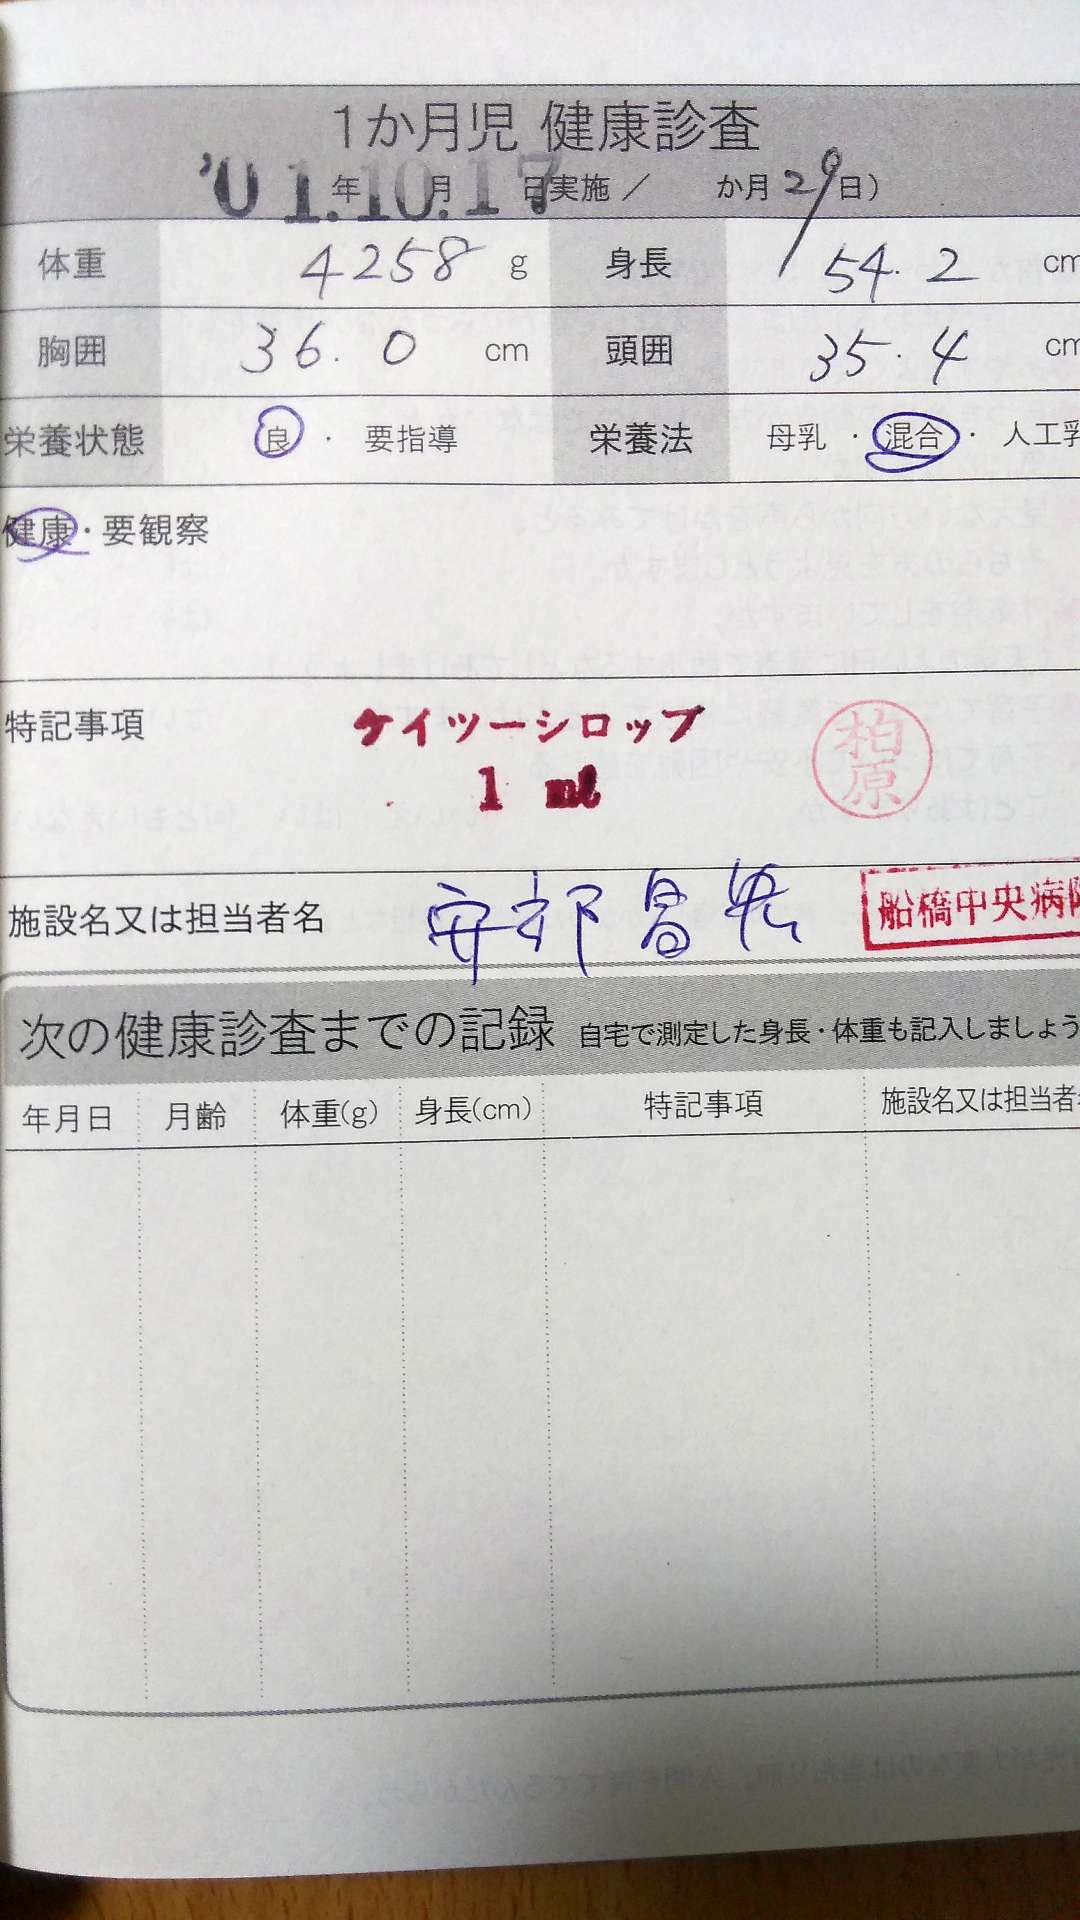 1か月児 健康診査
'01年10月17日実施 / か月29日)
体重 4258 g 身長 54.2 cm
胸囲 36.0 cm 頭囲 35.4 cm
栄養状態 良 ・ 要指導 栄養法 母乳 ・ 混合 ・ 人工乳
健康・要観察
特記事項 ケイツーシロップ
1 ml
柏原
施設名又は担当者名 安部昌 船橋中央病院
次の健康診査までの記録 自宅で測定した身長・体重も記入しましょう
年月日 月齢 体重(g) 身長(cm) 特記事項 施設名又は担当者